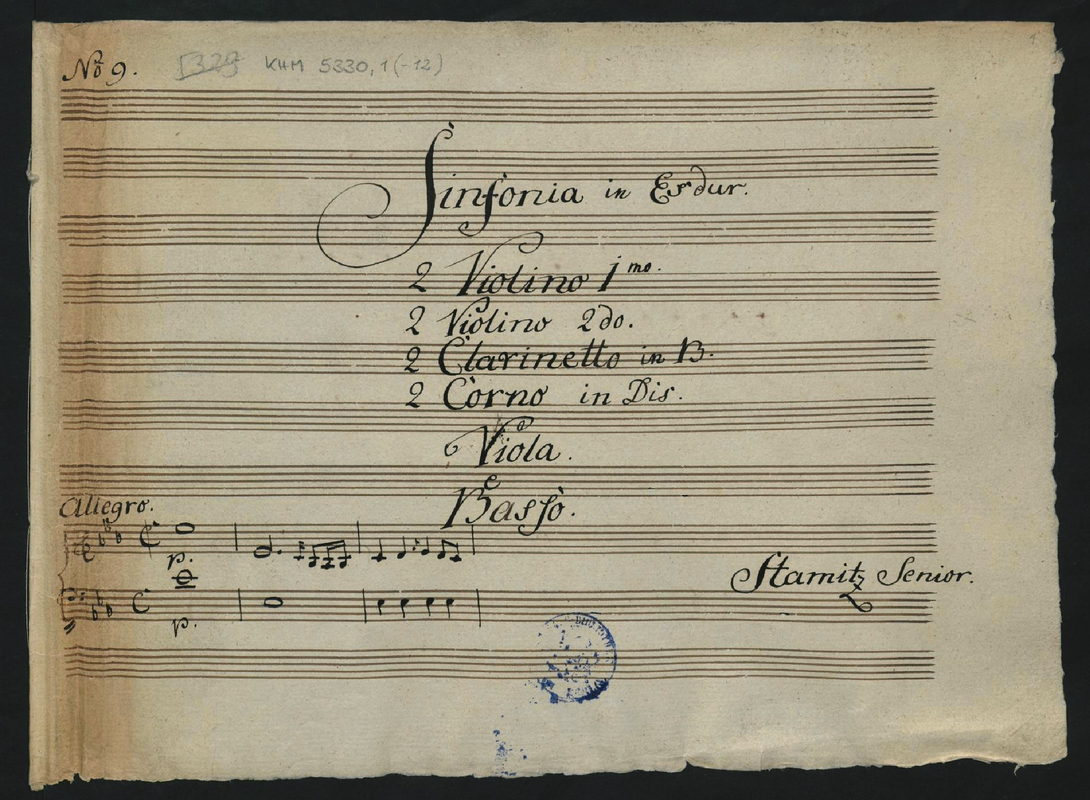 No 9. 5329 KHM 5330,1 (-12)
Sinfonia in Es dur.
2 Violino 1mo.
2 Violino 2do.
2 Clarinetto in B.
2 Corno in Dis.
Viola.
Basso.
Allegro.
p.
p.
Stamitz Senior.